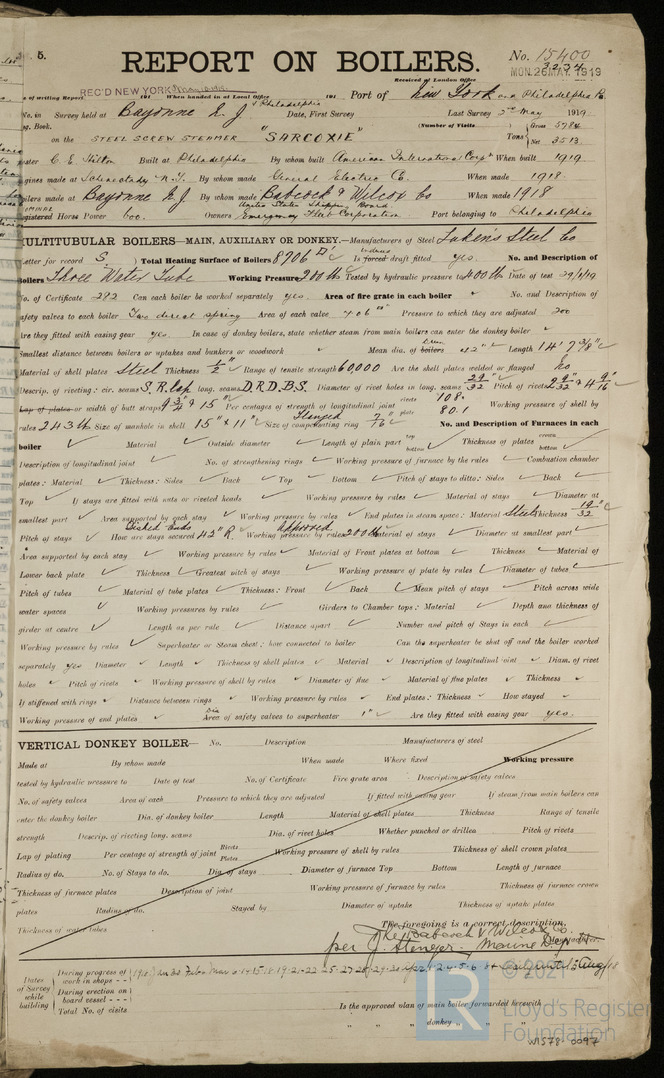 5.
REPORT ON BOILERS.
No. 15400
3234
MON. 26 MAY. 1919
REC'D NEW YORK
Received at London Office
of writing Report 191 When handed in at Local Office 191 Port of New York and Philadelphia Pa.
No. in Survey held at Bayonne N.J. & Philadelphia Date, First Survey Last Survey 3rd May 1919
Reg. Book. (Number of Visits
on the STEEL SCREW STEAMER "SARCOXIE" Tons Gross 5784 Net 3513
Master C. E. Hilton Built at Philadelphia By whom built American International Corpn When built 1919.
Engines made at Schenectady N.Y. By whom made General Electric Co. When made 1918.
Boilers made at Bayonne N.J By whom made Babcock & Wilcox Co When made 1918
Registered Horse Power 600. Owners United States Shipping Board Emergency Fleet Corporation Port belonging to Philadelphia
MULTITUBULAR BOILERS—MAIN, AUXILIARY OR DONKEY.—Manufacturers of Steel Luken's Steel Co
Letter for record S Total Heating Surface of Boilers 8706 □' Is forced draft fitted yes. No. and Description of
Boilers Three Water Tube Working Pressure 200 lb Tested by hydraulic pressure to 400 lb Date of test
No. of Certificate 282 Can each boiler be worked separately yes. Area of fire grate in each boiler ✓ No. and Description of
safety valves to each boiler Two direct spring Area of each valve 7.06 □" Pressure to which they are adjusted 200
Are they fitted with easing gear yes In case of donkey boilers, state whether steam from main boilers can enter the donkey boiler ✓
Smallest distance between boilers or uptakes and bunkers or woodwork ✓ Mean dia. of boilers 42" Length 14' 7 3/8"
Material of shell plates Steel Thickness 1/2" Range of tensile strength 60,000 Are the shell plates welded or flanged No
Descrip. of riveting: cir. seams S.R. Lap long. seams D.R.D.B.S. Diameter of rivet holes in long. seams 29/32" Pitch of rivets
Lap of plates or width of butt straps 9 3/4" & 15" Per centages of strength of longitudinal joint rivets 108. plate 80.1 Working pressure of shell by
rules 243 lb Size of manhole in shell 15" x 11" Size of compensating ring Flanged 7/16" No. and Description of Furnaces in each
boiler ✓ Material ✓ Outside diameter ✓ Length of plain part top bottom Thickness of plates crown bottom
Description of longitudinal joint ✓ No. of strengthening rings ✓ Working pressure of furnace by the rules ✓ Combustion chamber
plates: Material ✓ Thickness: Sides ✓ Back ✓ Top ✓ Bottom ✓ Pitch of stays to ditto: Sides ✓ Back ✓
Top ✓ If stays are fitted with nuts or riveted heads ✓ Working pressure by rules ✓ Material of stays ✓ Diameter at
smallest part ✓ Area supported by each stay ✓ Working pressure by rules ✓ End plates in steam space: Material Steel Thickness 19/32"
Pitch of stays ✓ How are stays secured Dished Ends 42" R. Working pressure by rules Approved 200 lb Material of stays ✓ Diameter at smallest part ✓
Area supported by each stay ✓ Working pressure by rules ✓ Material of Front plates at bottom ✓ Thickness ✓ Material of
Lower back plate ✓ Thickness ✓ Greatest pitch of stays ✓ Working pressure of plate by rules ✓ Diameter of tubes ✓
Pitch of tubes ✓ Material of tube plates ✓ Thickness: Front ✓ Back ✓ Mean pitch of stays ✓ Pitch across wide
water spaces ✓ Working pressures by rules ✓ Girders to Chamber tops: Material ✓ Depth and thickness of
girder at centre ✓ Length as per rule ✓ Distance apart ✓ Number and pitch of Stays in each ✓
Working pressure by rules ✓ Superheater or Steam chest; how connected to boiler Can the superheater be shut off and the boiler worked
separately yes Diameter ✓ Length ✓ Thickness of shell plates ✓ Material ✓ Description of longitudinal joint ✓ Diam. of rivet
holes ✓ Pitch of rivets ✓ Working pressure of shell by rules ✓ Diameter of flue ✓ Material of flue plates ✓ Thickness ✓
If stiffened with rings ✓ Distance between rings ✓ Working pressure by rules ✓ End plates: Thickness ✓ How stayed ✓
Working pressure of end plates ✓ Dia Area of safety valves to superheater 1" Are they fitted with easing gear yes.
VERTICAL DONKEY BOILER— No. Description Manufacturers of steel
Made at By whom made When made Where fixed Working pressure
tested by hydraulic pressure to Date of test No. of Certificate Fire grate area Description of safety valves
No. of safety valves Area of each Pressure to which they are adjusted If fitted with easing gear If steam from main boilers can
enter the donkey boiler Dia. of donkey boiler Length Material of shell plates Thickness Range of tensile
strength Descrip. of riveting long. seams Dia. of rivet holes Whether punched or drilled Pitch of rivets
Lap of plating Per centage of strength of joint Rivets Plates Working pressure of shell by rules Thickness of shell crown plates
Radius of do. No. of Stays to do. Dia. of stays Diameter of furnace Top Bottom Length of furnace
Thickness of furnace plates Description of joint Working pressure of furnace by rules Thickness of furnace crown
plates Radius of do. Stayed by Diameter of uptake Thickness of uptake plates
Thickness of water tubes
The foregoing is a correct description,
The Babcock & Wilcox Co.
per J. Stenger. Marine Dept. Manufacturer.
Dates of Survey while building
During progress of work in shops - -
During erection on board vessel - - -
Total No. of visits
Is the approved plan of main boiler forwarded herewith
" " " donkey " " "
© 2021
LR
Lloyd's Register
Foundation
W1578-0097